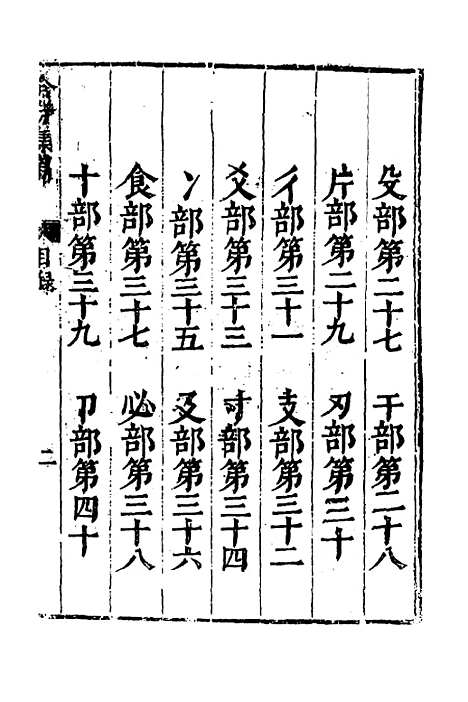 殳部第二十七　干部第二十八
片部第二十九　刃部第三十
彳部第三十一　支部第三十二
爻部第三十三　寸部第三十四
冫部第三十五　及部第三十六
食部第三十七　必部第三十八
十部第三十九　卩部第四十
目録
二